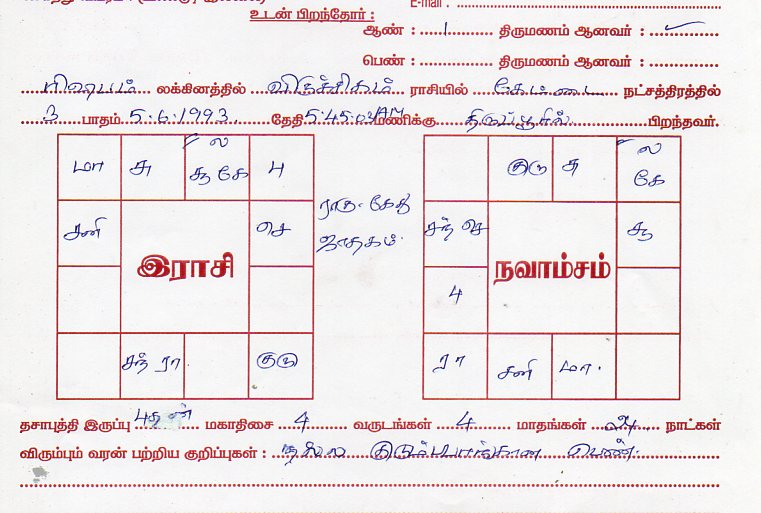 E-mail :
உடன் பிறந்தோர் :
ஆண் : 1 திருமணம் ஆனவர் :
பெண் : திருமணம் ஆனவர் :
ரிஷபம் லக்கினத்தில் விருச்சிகம் ராசியில் கேட்டை நட்சத்திரத்தில்
3 பாதம் 5.6.1993 தேதி 5.45.03 AM மணிக்கு திருப்பூரில் பிறந்தவர்.
மா சு ல சூ கே பு
சனி செ
இராசி
சந் ரா குரு
ராகு. கேது
ஜாதகம்.
குரு சு ல கே
சந் செ சூ
பு
நவாம்சம்
ரா சனி மா.
தசாபுத்தி இருப்பு புதன் மகாதிசை 4 வருடங்கள் 4 மாதங்கள் நாட்கள்
விரும்பும் வரன் பற்றிய குறிப்புகள் : நல்ல குடும்பபாங்கான பெண்.